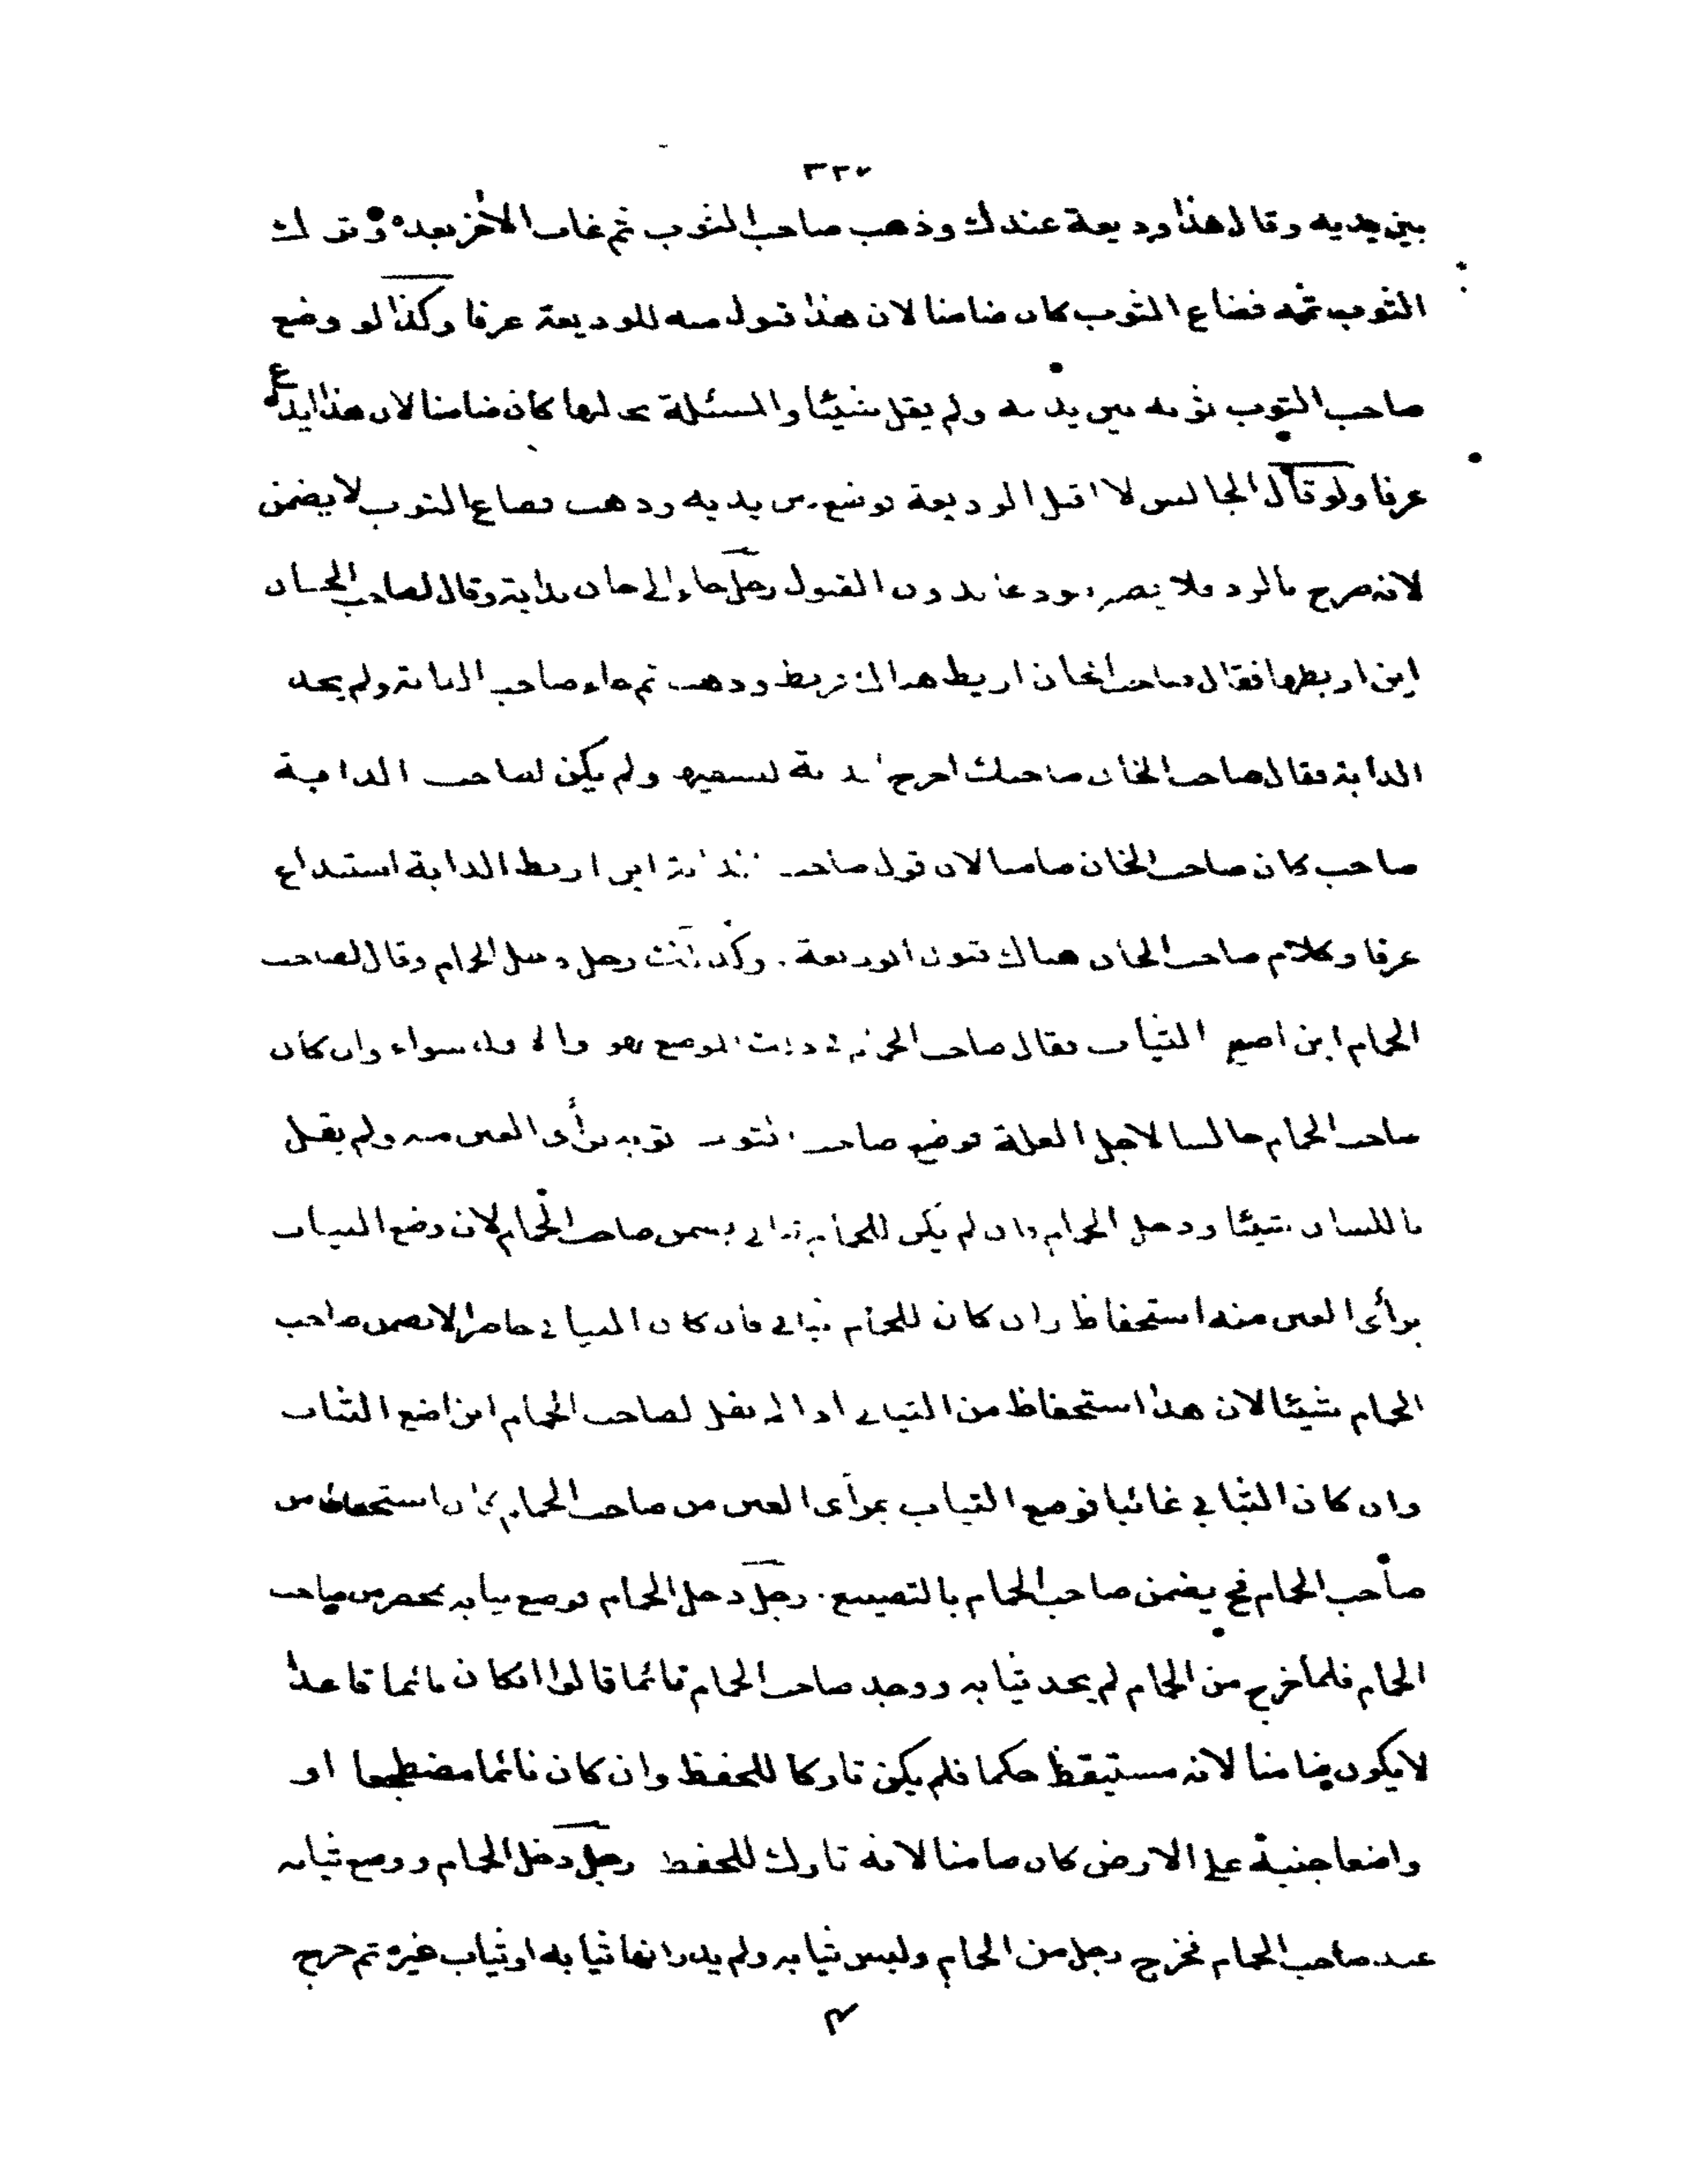 ٣٢٧
بين يديه وقال هذا وديعة عندك وذهب صاحب الثوب ثم غاب الآخر بعده وترك
الثوب ثمه فضاع الثوب كان ضامنا لان هذا قبول منه للوديعة عرفا وكذا لو وضع
صاحب الثوب ثوبه بين يديه ولم يقل شيئا والمسئلة بحالها كان ضامنا لان هذا ايداع
عرفا ولو قال الجالس لا اقبل الوديعة فوضع بين يديه وذهب فضاع الثوب لا يضمن
لانه صرح بالرد فلا يصير مودعا بدون القبول رجل جاء الى خان بدابة وقال لصاحب الخان
اين اربطها فقال صاحب الخان اربط هناك فربط وذهب ثم جاء صاحب الدابة ولم يجد
الدابة فقال صاحب الخان صاحبك اخرج الدابة ليسقيها ولم يكن لصاحب الدابة
صاحب كان صاحب الخان ضامنا لان قول صاحب الدابة اين اربط الدابة استيداع
عرفا وكلام صاحب الخان هناك قبول الوديعة. وكذلك رجل دخل الحمام وقال لصاحب
الحمام اين اضع الثياب فقال صاحب الحمام في ذلك الموضع فهو والاول سواء وان كان
صاحب الحمام جالسا لاجل الغلة فوضع صاحب الثوب ثوبه برأى العين منه ولم يقل
باللسان شيئا ودخل الحمام وان لم يكن للحمام ثيابي يضمن صاحب الحمام لان وضع الثياب
برأى العين منه استحفاظ وان كان للحمام ثيابي فان كان الثيابي حاضرا لا يضمن صاحب
الحمام شيئا لان هذا استحفاظ من الثيابي اذا لم يقل لصاحب الحمام اين اضع الثياب
وان كان الثيابي غائبا فوضع الثياب بمرآى العين من صاحب الحمام كان استحفاظا من
صاحب الحمام فح يضمن صاحب الحمام بالتضييع. رجل دخل الحمام فوضع ثيابه بمحضر من صاحب
الحمام فلما خرج من الحمام لم يجد ثيابه ووجد صاحب الحمام نائما قالوا ان كان نائما قاعدا
لا يكون ضامنا لانه مستيقظ حكما فلم يكن تاركا للحفظ وان كان نائما مضطجعا او
واضعا جنبه على الارض كان ضامنا لانه تارك للحفظ رجل دخل الحمام ووضع ثيابه
عند صاحب الحمام فخرج رجل من الحمام ولبس ثيابه ولم يدر انها ثيابه او ثياب غيره ثم خرج